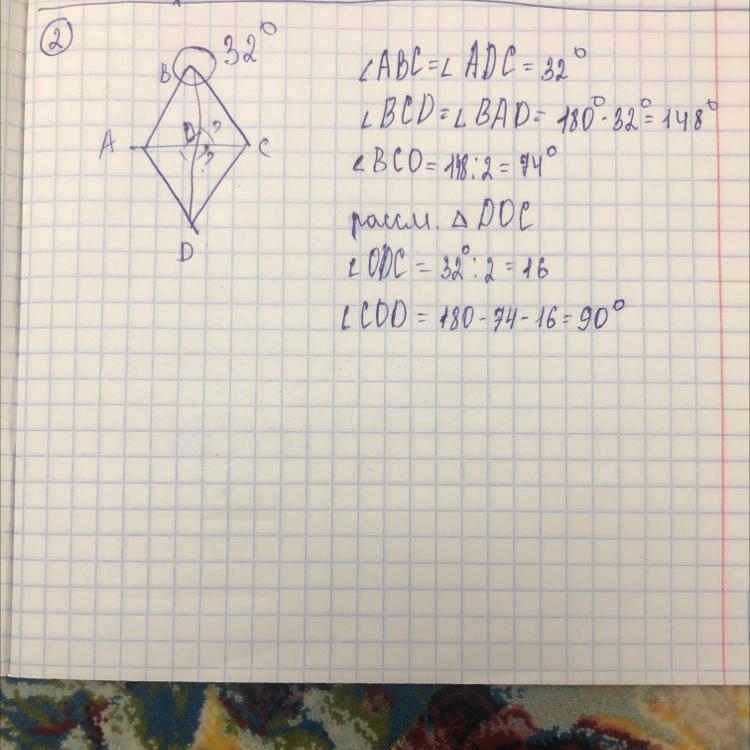 2
32°
B
A
O
?
C
?
D
∠ABC = ∠ADC = 32°
∠BCD = ∠BAD = 180° - 32° = 148°
∠BCO = 148 : 2 = 74°
рассм. △ DOC
∠ODC = 32° : 2 = 16
∠COD = 180 - 74 - 16 = 90°